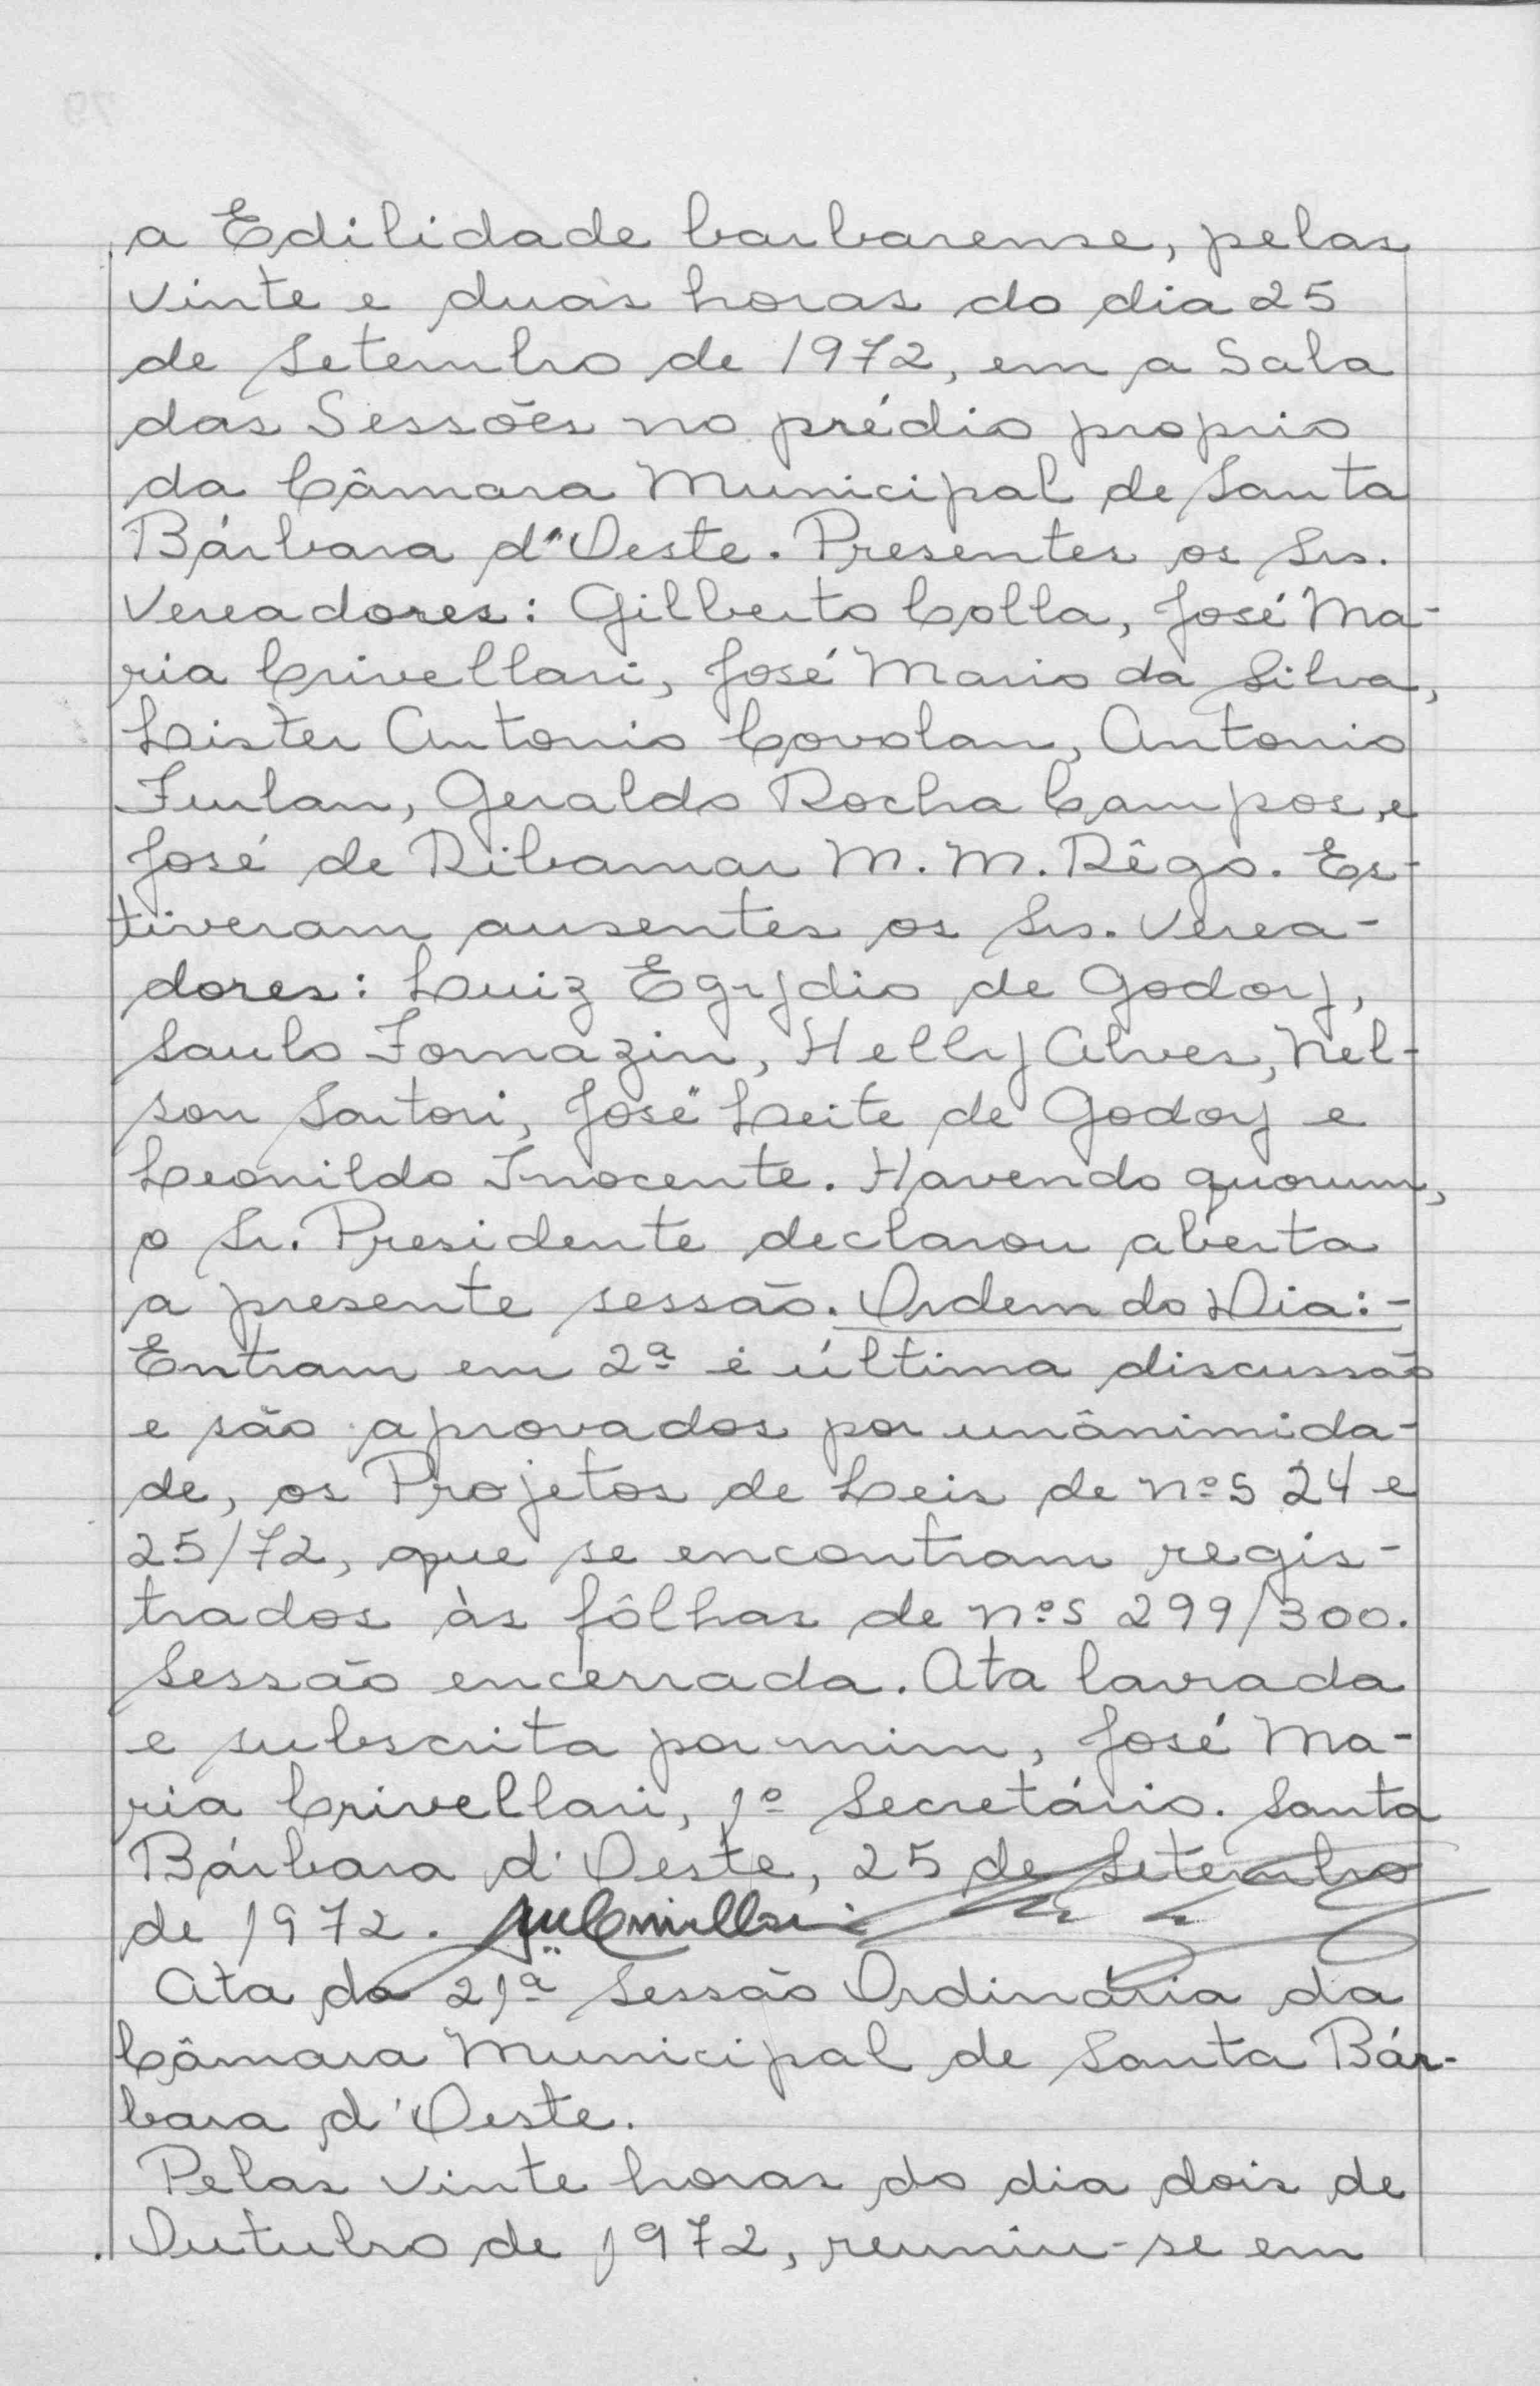 a Edilidade barbarense, pelas
vinte e duas horas do dia 25
de Setembro de 1972, em a Sala
das Sessões no prédio proprio
da Câmara Municipal de Santa
Bárbara d'Oeste. Presentes os Srs.
Vereadores: Gilberto Colla, José Ma-
ria Crivellari, José Mario da Silva,
Lister Antonio Covolan, Antonio
Furlan, Geraldo Rocha Campos, e
José de Ribamar M. M. Rêgo. Es-
tiveram ausentes os Srs. Verea-
dores: Luiz Egydio de Godoy,
Saulo Fornazin, Helly Alves, Nel-
son Sartori, José Leite de Godoy e
Leonildo Inocente. Havendo quorum,
o Sr. Presidente declarou aberta
a presente sessão. Ordem do Dia:-
Entram em 2ª e última discussão
e são aprovados por unânimida-
de, os Projetos de Leis de nºs 24 e
25/72, que se encontram regis-
trados às fôlhas de nºs 299/300.
Sessão encerrada. Ata lavrada
e subscrita por mim, José Ma-
ria Crivellari, 1º Secretário. Santa
Bárbara d'Oeste, 25 de Setembro
de 1972.
Ata da 21ª Sessão Ordinária da
Câmara Municipal de Santa Bár-
bara d'Oeste.
Pelas vinte horas do dia dois de
Outubro de 1972, reuniu-se em